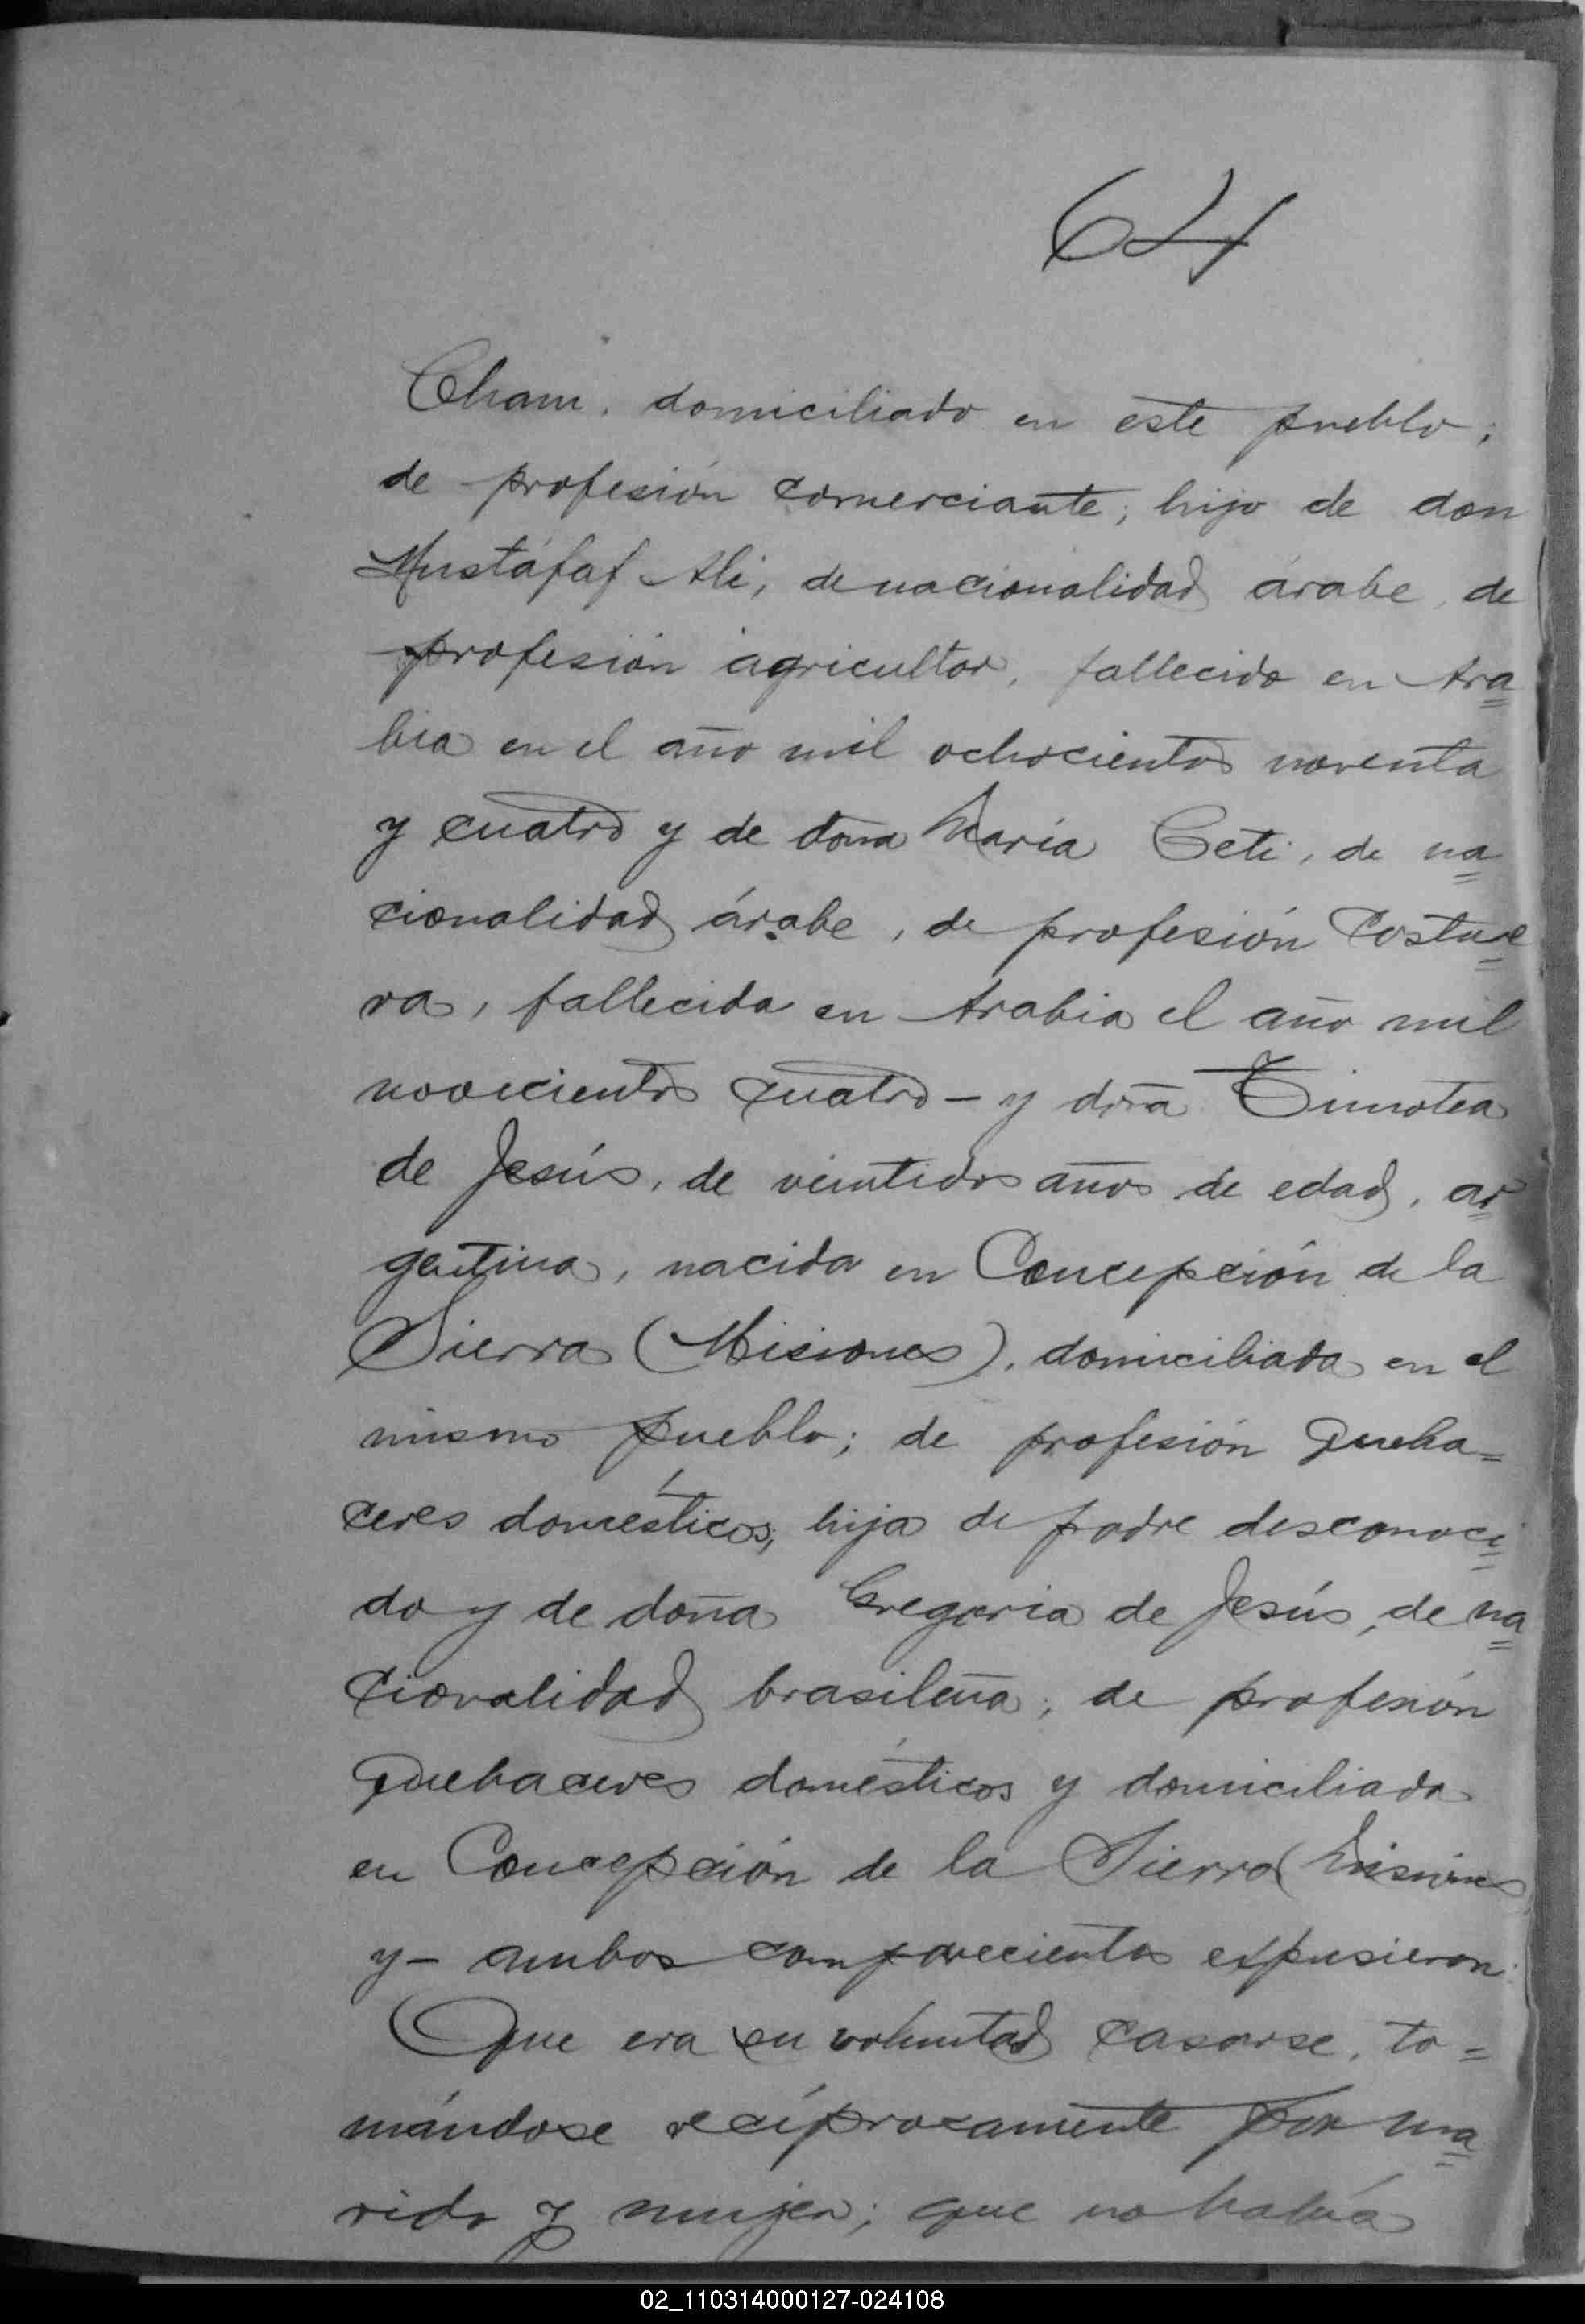 64
Cham, domiciliado en este pueblo;
de profesión comerciante; hijo de don
Mustáfaf Ali, de nacionalidad árabe, de
profesión agricultor, fallecido en Ara
bia en el año mil ochocientos noventa
y cuatro y de doña María Ceti, de na
cionalidad árabe, de profesión costure
ra, fallecida en Arabia el año mil
novecientos cuatro – y doña Timotea
de Jesús, de veintidos años de edad, ar
gentina, nacida en Concepción de la
Sierra (Misiones), domiciliada en el
mismo pueblo; de profesión queha=
ceres domésticos; hija de padre desconoci
do y de doña Gregoria de Jesús, de na
cionalidad brasileña; de profesión
quehaceres domésticos y domiciliada
en Concepción de la Sierra (Misiones
y – ambos comparecientes expusieron:
Que era su voluntad casarse, to=
mándose recíprocamente por ma
rido y mujer; que no había
02_110314000127-024108